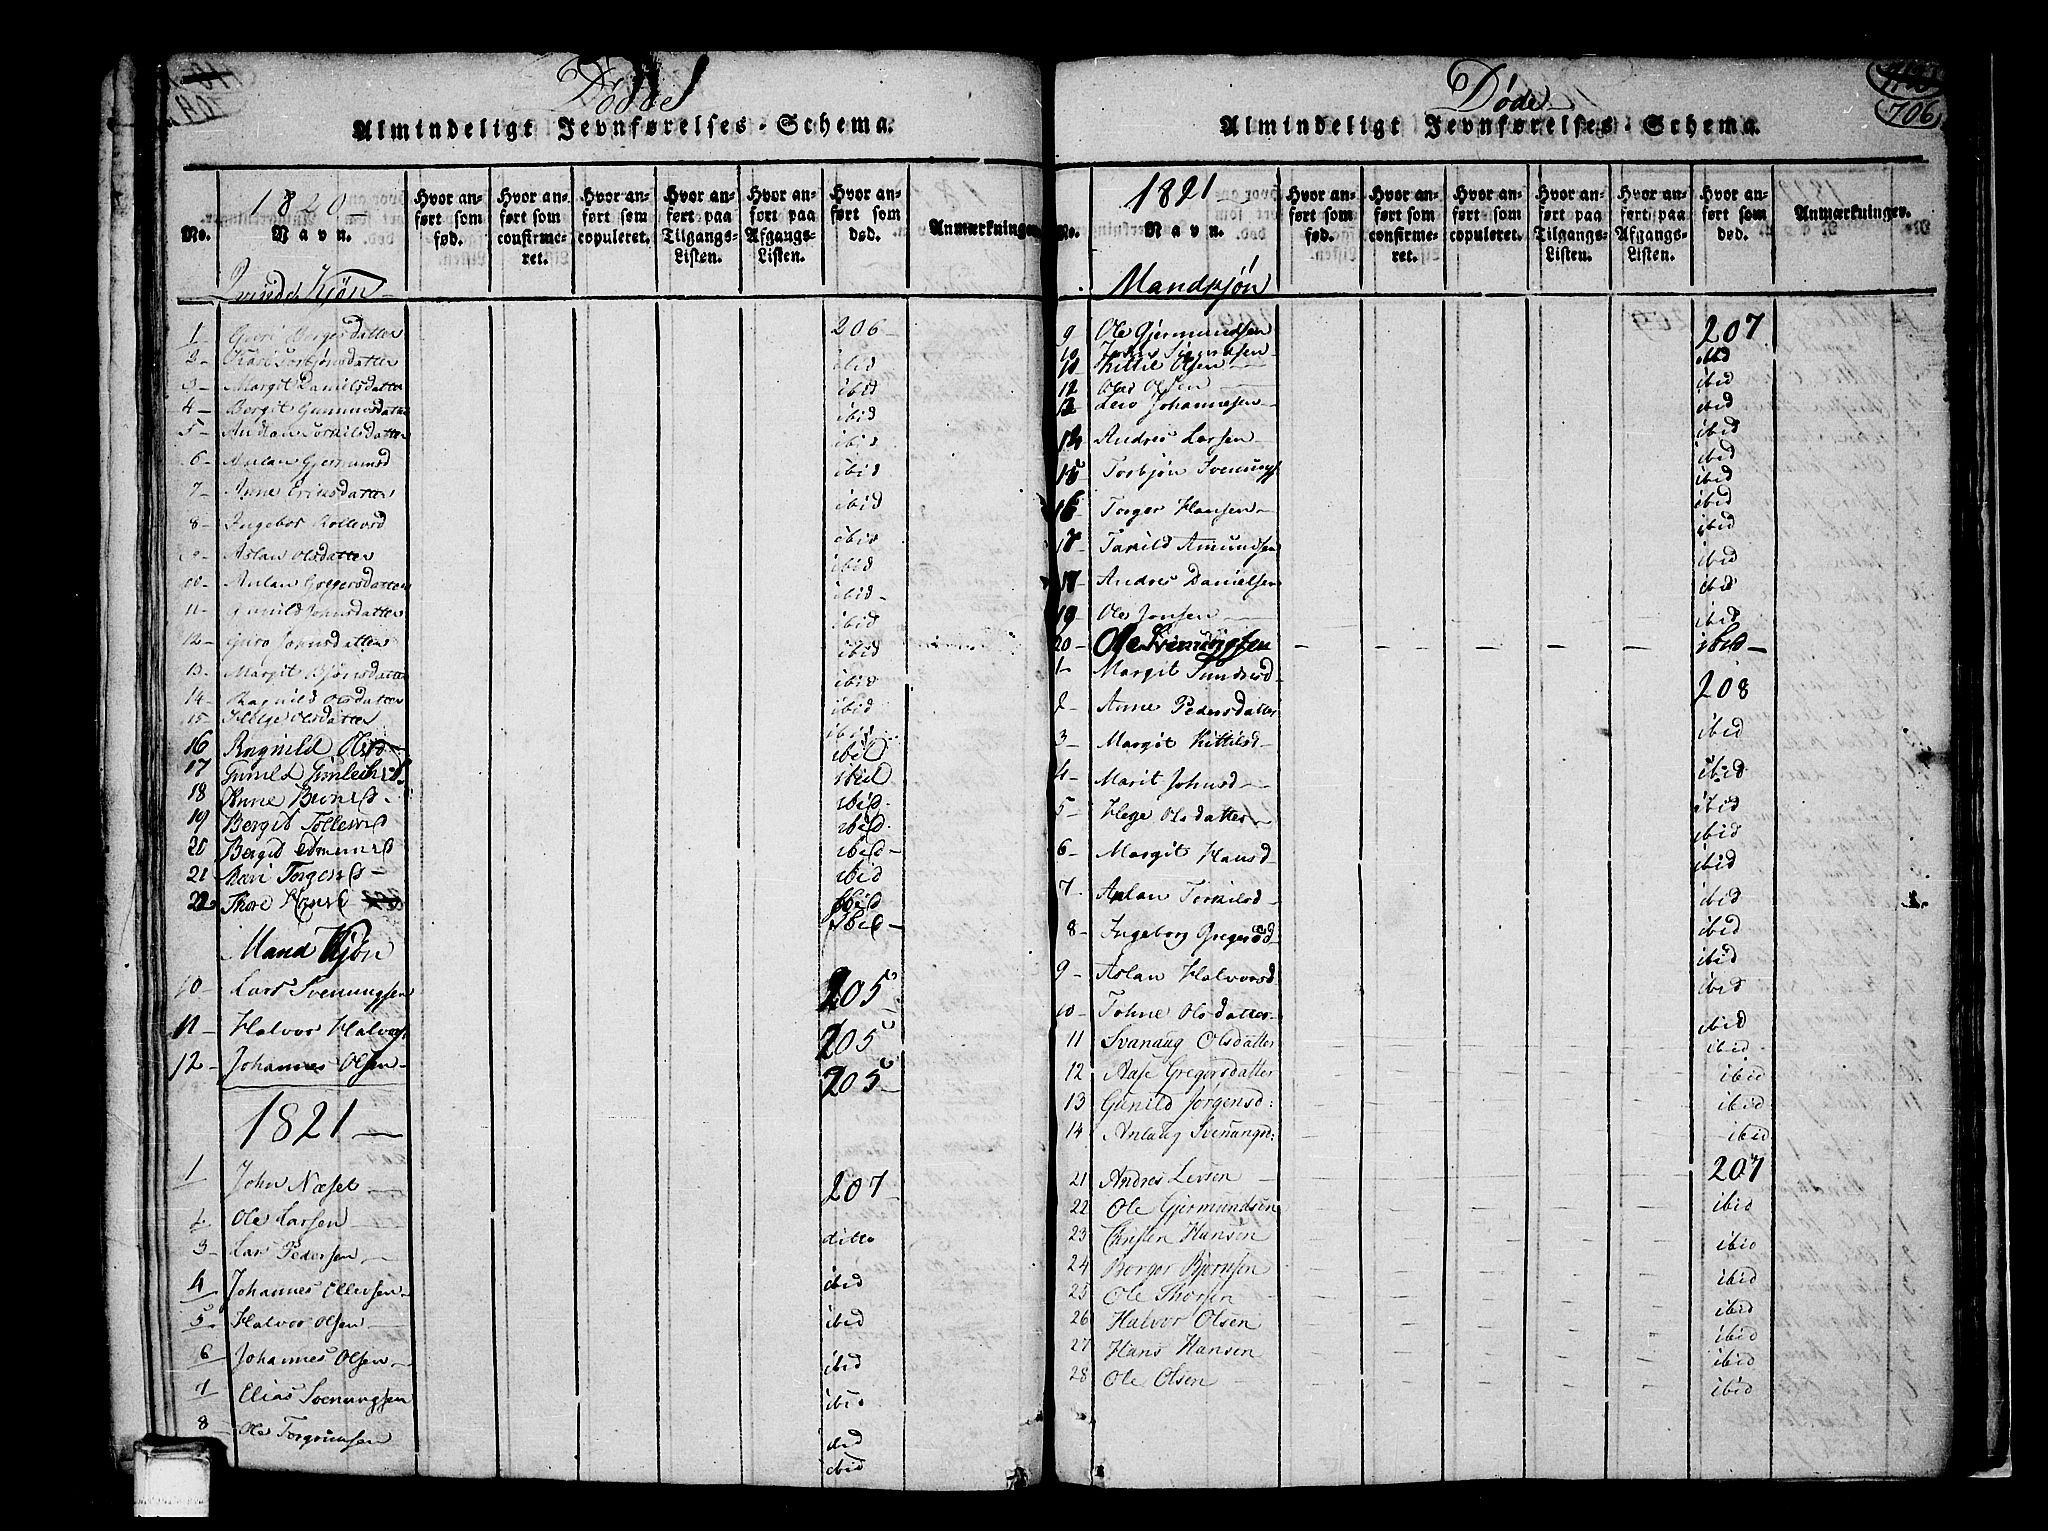 Døde
Almindeligt Jevnførelses-Schema.
No.
1820
Navn.
Hvor anført som fød.
Hvor anført som confirmeret.
Hvor anført som copuleret.
Hvor anført paa Tilgangs-Listen.
Hvor anført paa Afgangs-Listen.
Hvor anført som død.
Anmærkninger
Qvinde Kjøn
1 Guri 206
2 Kari Torbjønsdatter ibid
3 Margit Danielsdatter ibid
4 Bergit Gunnusdatter ibid
5 Torkilsdatter ibid
6 Aslau Gjermunsd ibid
7 Anne Eriksdatter ibid
8 Ingebor Tollevsd ibid
9 Aslau Olsdatter ibid
10 Anlau Gregersdatter ibid
11 Gunild Johnsdatter ibid
12 Guro Johnsdatter ibid
13 Margit Bjønsdatter ibid
14 Ragnild Olsdatter ibid
15 Helge Olsdatter ibid
16 Ragnild Olsd ibid
17 Gunild ibid
18 Anne ibid
19 Bergit Tollevsd ibid
20 Bergit ibid
21 Kari Torgersd ibid
22 Thore ibid
Mand Kjøn
10 Lars Svenungsen 205
11 Halvor Halvors 205
12 Johannes Olsen 205
1821
1 John Næset 207
2 Ole Larsen ditto
3 Lars Pedersen
4 Johannes Ollevsen ibid
5 Halvor Olsen ibid
6 Johannes Olsen ibid
7 Elias Svenungsen ibid
8 Ole Torgrimsen ibid
Døde
706
Almindeligt Jevnførelses-Schema.
No.
1821
Navn.
Hvor anført som fød.
Hvor anført som confirmeret.
Hvor anført som copuleret.
Hvor anført paa Tilgangs-Listen.
Hvor anført paa Afgangs-Listen.
Hvor anført som død.
Anmærkninger.
Mandkjøn
9 Ole Gjermundsen 207
10 ibid
11 Kittil Olsen ibid
12 Ole Olsen ibid
13 Leiv Johannesen ibid
14 Andres Larsen ibid
15 Torbjøn Svenungs ibid
16 Torger Hansen ibid
17 Tarkild Amundsen ibid
17 Andres Danielsen ibid
19 Ole Jonsen ibid
20 Ole Svenungsen ibid
1 Margit Sundresd 208
2 Anne Pedersdatter ibid
3 Margit Kittilsd ibid
4 Marit Johnsd ibid
5 Hege Olsdatter ibid
6 Margit Hansd ibid
7 Aslau Terkilsd ibid
8 Ingeborg Gregersd ibid
9 Aslau Halvorsd ibid
10 Tohne Olsdatter ibid
11 Svanaug Olsdatter ibid
12 Aase Gregersdatter ibid
13 Gunild Jørgensd: ibid
14 Anlaug Svenungsd: ibid
21 Andres Levsen 207
22 Ole Gjermundsen ibid
23 Christen Hansen ibid
24 Borger Bjørnsen ibid
25 Ole Thorsen ibid
26 Halvor Olsen ibid
27 Hans Hansen ibid
28 Ole Olsen ibid